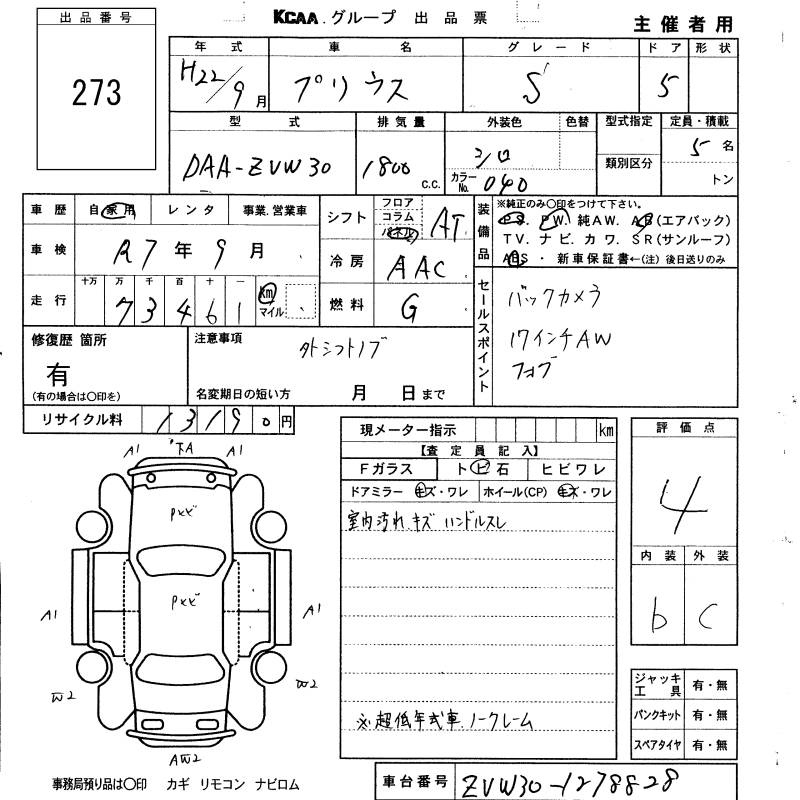 KCAA.グループ 出品票
主催者用
出品番号
273
年式 車名 グレード ドア 形状
H22/9月 プリウス S 5
型式 排気量 外装色 色替 型式指定 定員・積載
DAA-ZVW30 1800 c.c. シロ カラーNo. 040 類別区分 5名 トン
車歴 自家用 レンタ 事業.営業車
車検 R7年9月
走行 十万 万 千 百 十 一
73461 km マイル
シフト フロア コラム パネル AT
冷房 AAC
燃料 G
装備品
※純正のみ○印をつけて下さい。
P.S. P.W. 純AW. AB(エアバック)
TV. ナビ. カワ. SR(サンルーフ)
ABS ・ 新車保証書←(注) 後日送りのみ
セールスポイント
バックカメラ
17インチAW
フォブ
修復歴 箇所
有
(有の場合は○印を)
注意事項
外シフトノブ
名変期日の短い方 月 日まで
リサイクル料 13190円
現メーター指示 km
【査定員記入】
Fガラス トビ石 ヒビワレ
ドアミラー キズ・ワレ ホイール(CP) キズ・ワレ
室内汚れ キズ ハンドルスレ
※超低年式車ノークレーム
評価点
4
内装 外装
b C
ジャッキ工具 有・無
パンクキット 有・無
スペアタイヤ 有・無
A1 下A A1
PXX
A1 PXX A1
W2 W2
AW2
事務局預り品は○印 カギ リモコン ナビロム
車台番号 ZVW30-1278828